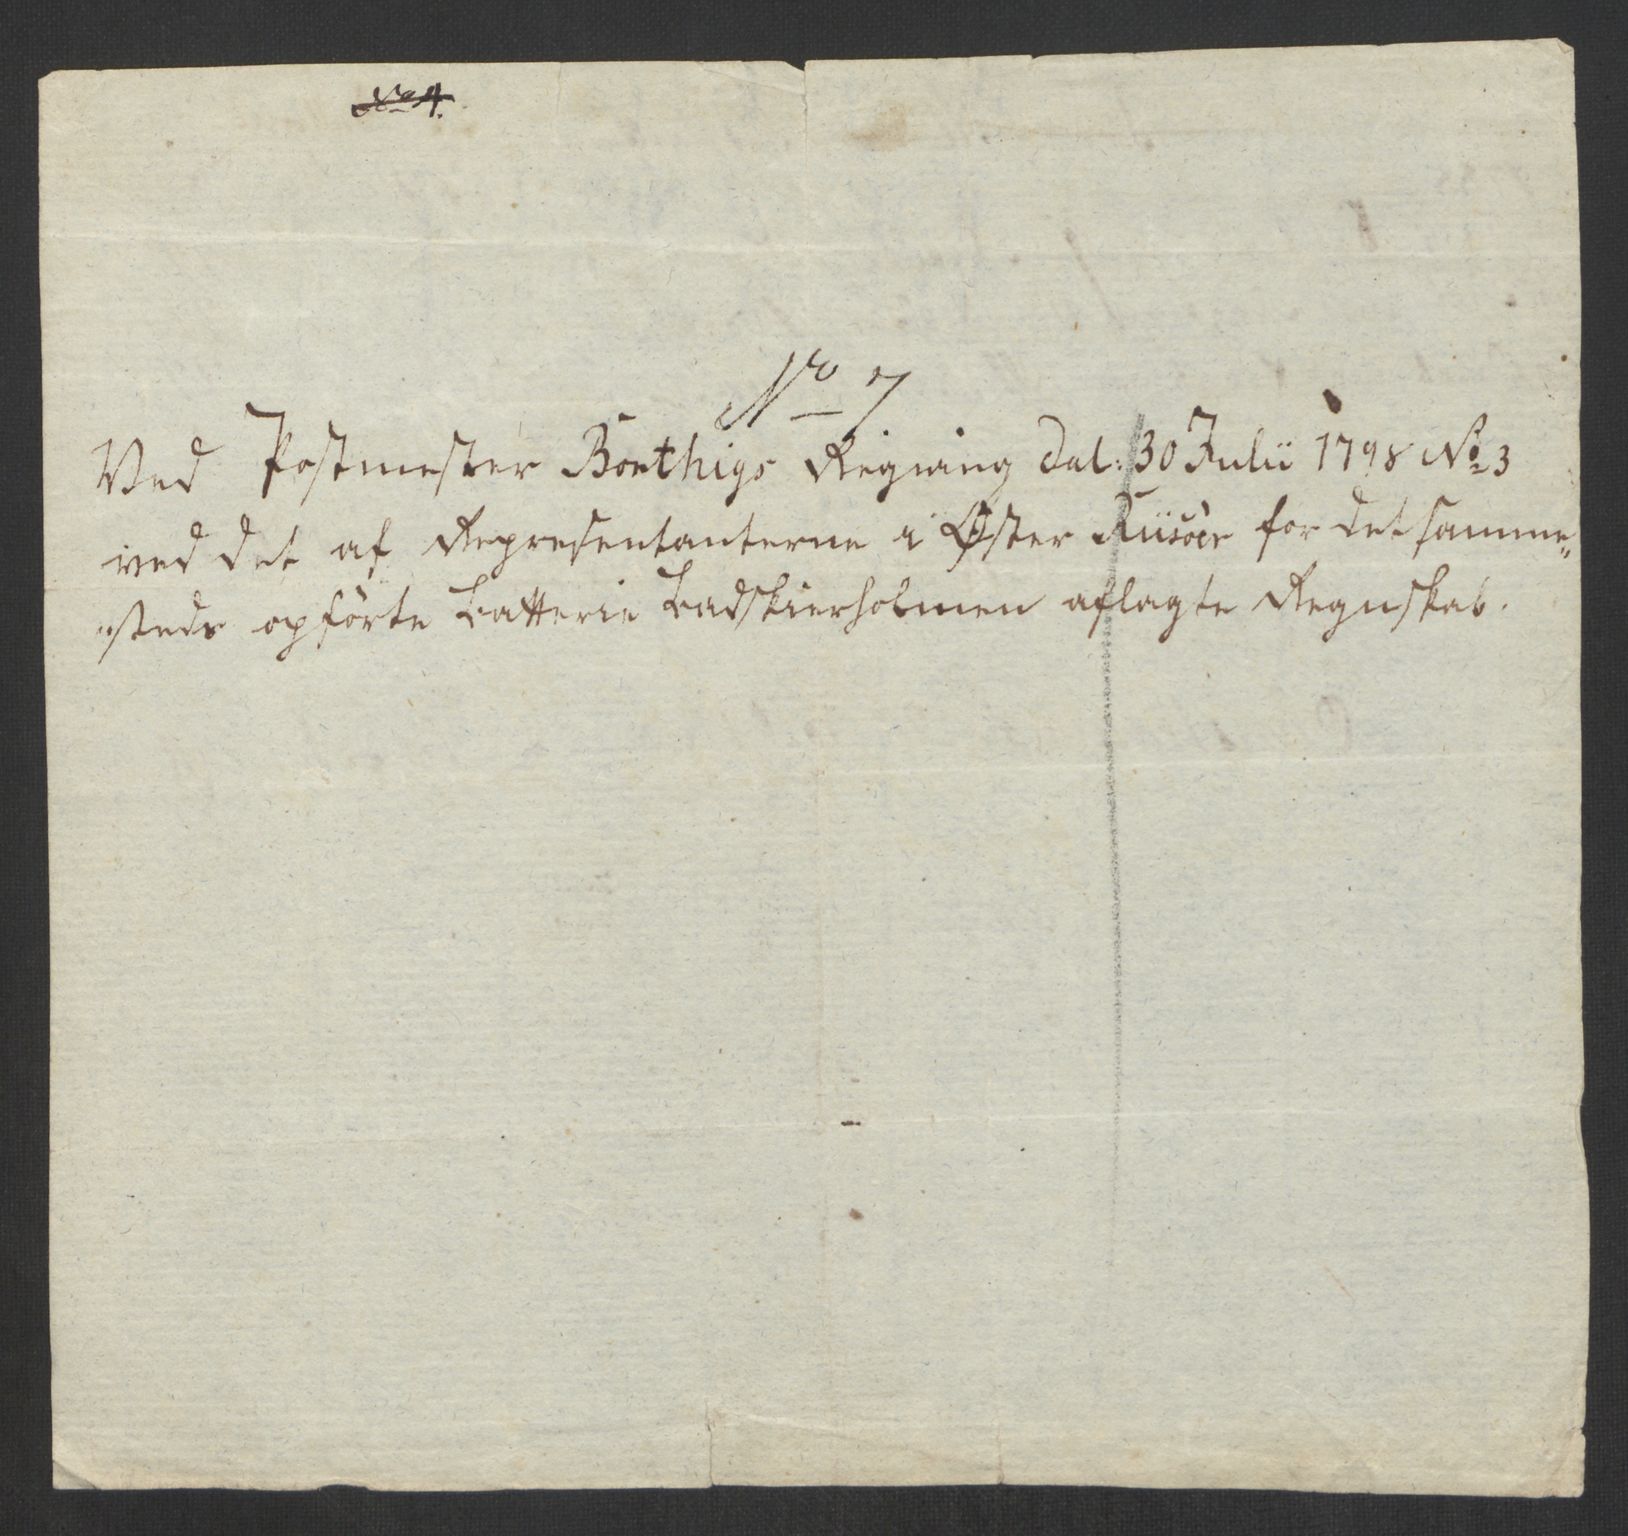 No 4.
No 7
Ved Postmester Boethigs Regning Dat: 30 Julii 1798 No 3
ved det af Representanterne i Øster Riisöer for det samme„
„steds opförte Batterie Badskierholmen aflagte Regnskab.